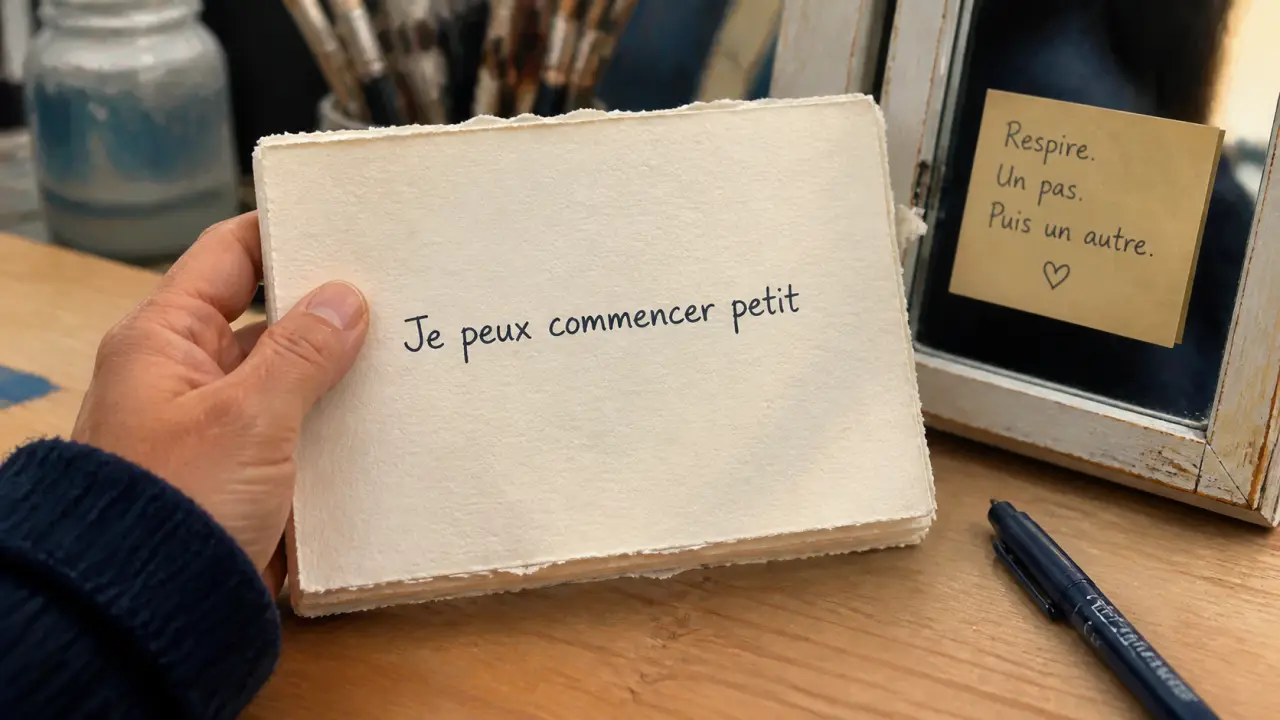 Je peux commencer petit
Respire.
Un pas.
Puis un autre.